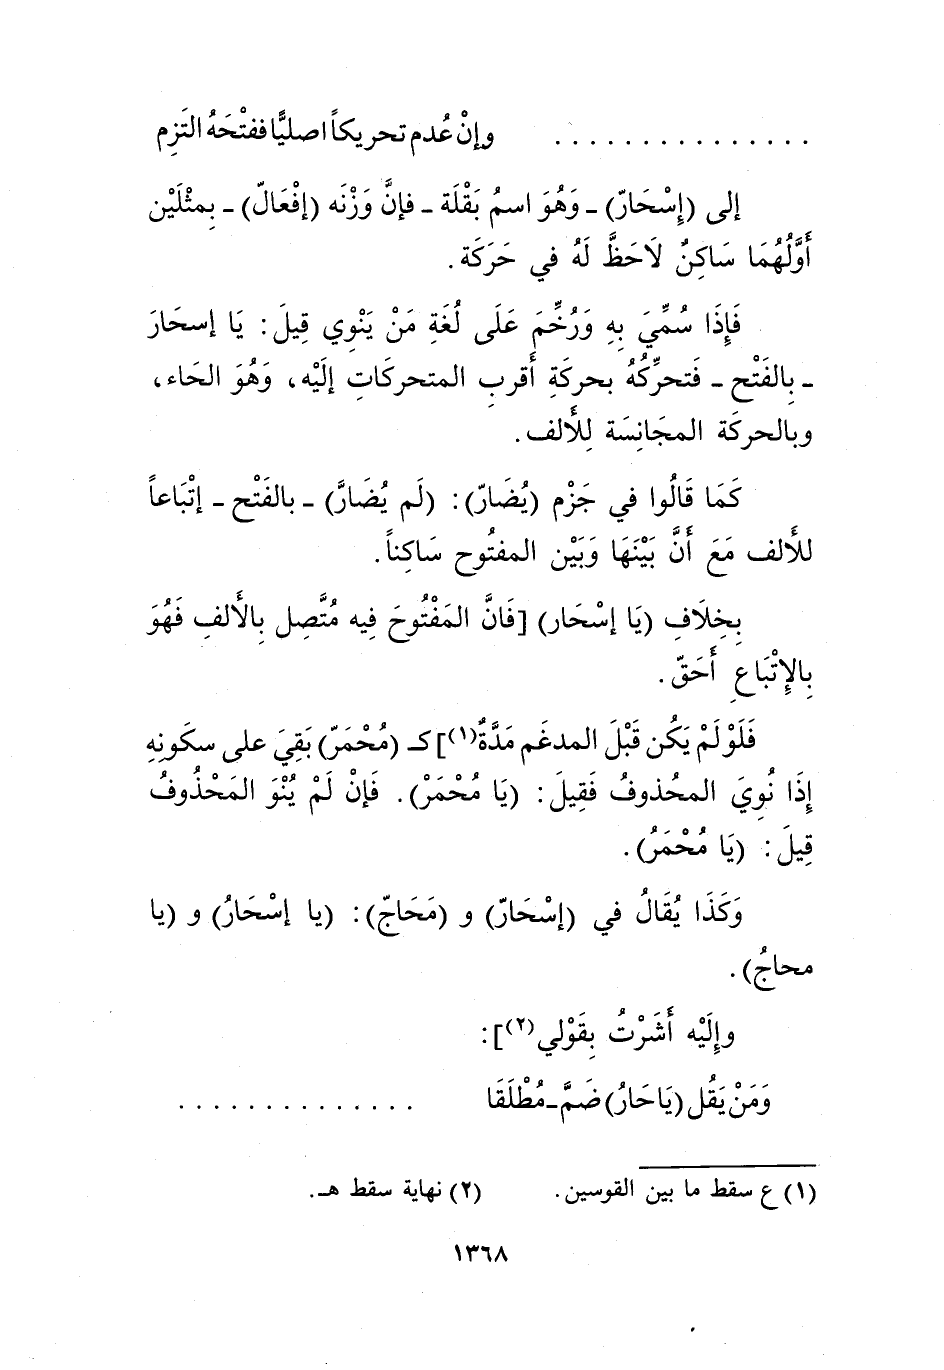 . . . . . . . . . . . . . . . وإنْ عُدم تحريكاً اصليًّا ففتْحَهُ التَزِم
إلى (إِسْحَارّ) ـ وَهُوَ اسمُ بَقْلَة ـ فإنَّ وَزْنَه (إفْعَالّ) ـ بِمثْلَيْن
أَوَّلُهُمَا سَاكِنٌ لَاحَظَّ لَهُ في حَرَكَة .
فَإِذَا سُمِّيَ بِهِ وَرُخِّمَ عَلَى لُغَةِ مَنْ يَنْوِي قِيلَ : يَا إسحَارَ
ـ بِالفَتْح ـ فَتحرِّكُهُ بحركَةِ أَقربِ المتحركَاتِ إلَيْه، وَهُوَ الحَاء،
وبالحركَة المجَانِسَة لِلأَلف .
كَمَا قَالُوا في جَزْم (يُضَارّ) : (لَم يُضَارَّ) ـ بالفَتْح ـ إتْبَاعاً
للأَلف مَعَ أَنَّ بَيْنَهَا وَبَيْن المفتُوح سَاكِناً .
بِخِلَافِ (يَا إسْحَار) [فَانَّ المَفْتُوحَ فِيه مُتَّصِل بِالأَلفِ فَهُوَ
بِالإِتْبَاعِ أَحَقّ .
فَلَوْ لَمْ يَكُن قَبْلَ المدغَم مَدَّةٌ(١)] كـ (مُحْمَرّ) بَقِيَ على سكَونِهِ
إذَا نُوِيَ المحُذوفُ فَقِيلَ : (يَا مُحْمَرْ) . فَإنْ لَمْ يُنْوَ المَحْذُوفُ
قِيلَ : (يَا مُحْمَرُ) .
وَكَذَا يُقَالُ في (إسْحَارّ) و (مَحَاجّ) : (يا إسْحَارُ) و (يا
محاجُ) .
وإلَيْه أَشَرْتُ بِقَوْلي(٢)] :
وَمَنْ يَقُل (يَا حَارُ) ضَمَّ ـ مُطْلَقَا . . . . . . . . . . . . . .
(١) ع سقط ما بين القوسين . (٢) نهاية سقط هـ .
١٣٦٨